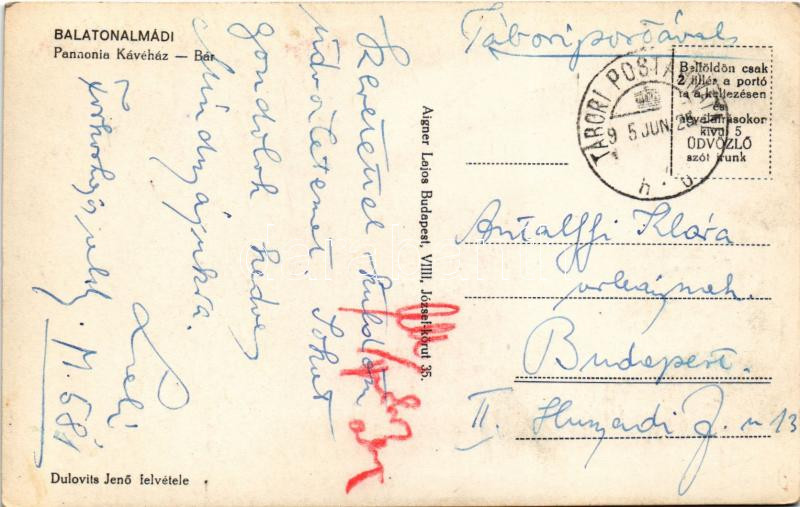 BALATONALMÁDI
Pannonia Kávéház — Bár
Szeretettel küldöm
üdvözletemet. Sokat
gondolok kedves
Mindnyájukra.
M. 681
Dulovits Jenő felvétele
Aigner Lajos Budapest, VIII, József-körut 35.
Tábori postával
Belföldön csak
2 fillér a portó
ha a keltezésen
és
névaláirásokon
kívül 5
ÜDVÖZLŐ
szót írunk
TÁBORI POSTA
9 5 JUN. 25
Antalffi Klára
urleánynak.
Budapest.
II. Hunyadi J. u 13